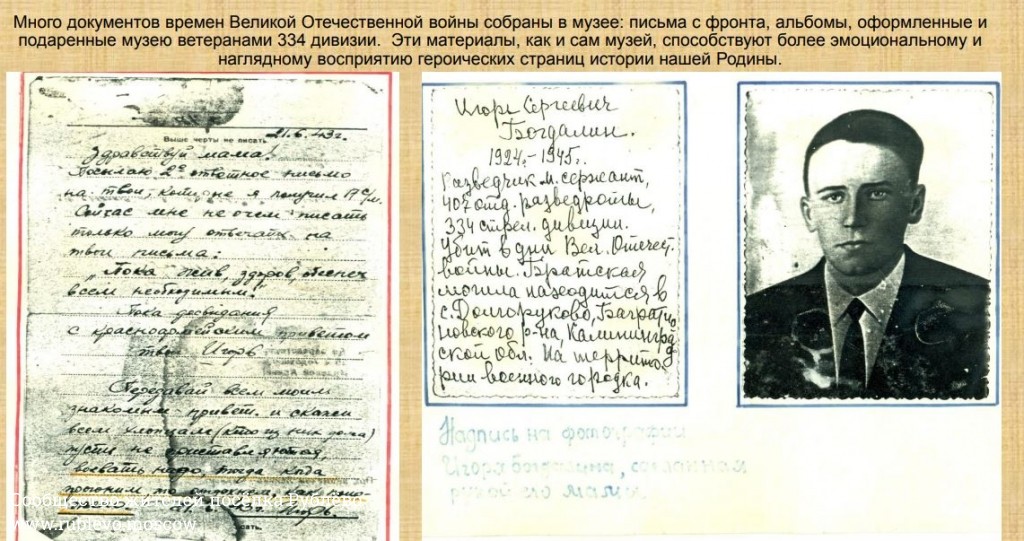 Много документов времен Великой Отечественной войны собраны в музее: письма с фронта, альбомы, оформленные и
подаренные музею ветеранами 334 дивизии. Эти материалы, как и сам музей, способствуют более эмоциональному и
наглядному восприятию героических страниц истории нашей Родины.
Выше черты не писать
21.6.43г.
Здравствуй мама!
Посылаю 2ое ответное письмо
на твои, которые я получил
Сейчас мне не о чем писать
только могу отвечать на
твои письма.
"Пока жив, здоров, обеспеч
всем необходимым."
Пока досвидания
с красноармейским приветом
твой Игорь
Передавай всем моим
знакомым привет и скажи
всем хлопцам (кто из них дома)
пусть не
воевать надо, тогда когда
Игорь.
Игорь Сергеевич
Богдалин.
1924г.-1945г.
Разведчик м. сержант,
407 отд. разведроты,
334 стрел. дивизии.
Убит в дни Вел. Отечест.
войны. Братская
могила находится в
с. Долгоруково, Баграти
новского р-на, Калинингр
ской обл. На террито
рии военного городка.
Надпись на фотографии
Игоря Богдалина, сделанная
рукой его мамы.
Сообщество жителей поселка Рублево
www.rublevo.moscow